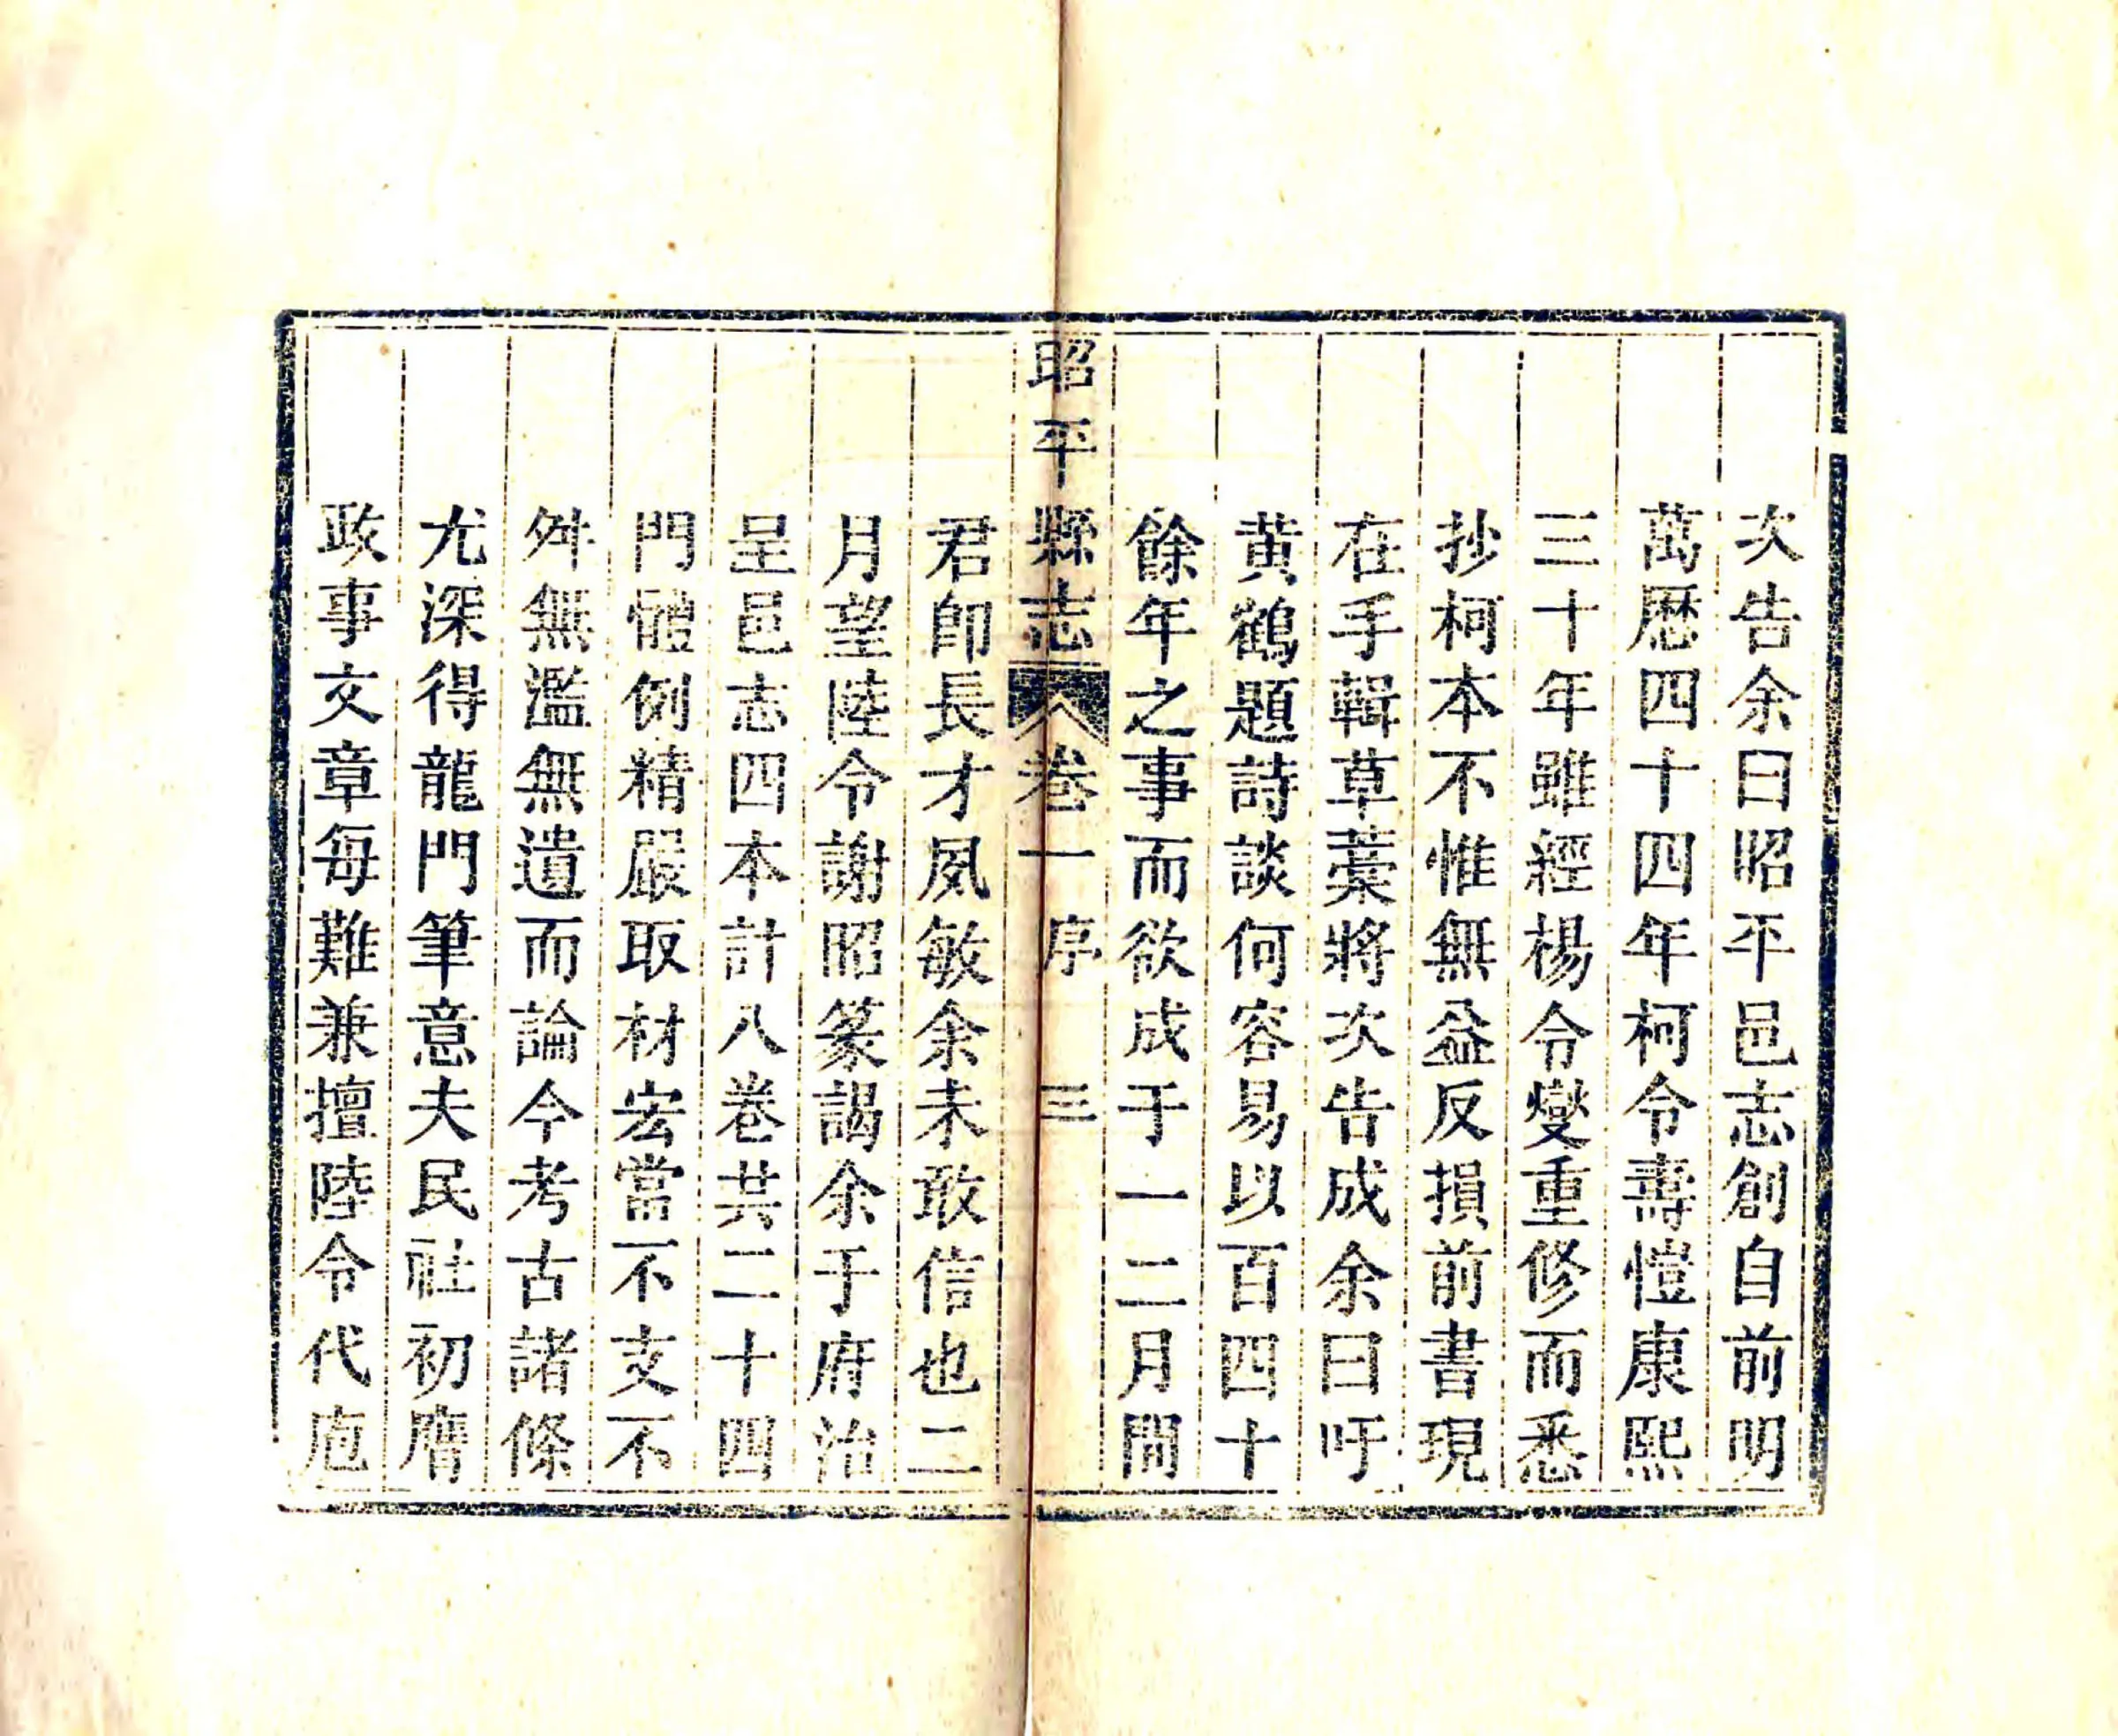 次告余曰昭平邑志創自前明
萬厯四十四年柯令壽愷康熙
三十年雖經楊令燮重修而悉
抄柯本不惟無益反損前書現
在手輯草藁將次告成余曰吁
黄鶴題詩談何容易以百四十
餘年之事而欲成于一二月間
昭平縣志 卷一 序 三
君卽長才夙敏余未敢信也二
月望陸令謝昭篆謁余于府治
呈邑志四本計八卷共二十四
門體例精嚴取材宏當不支不
舛無濫無遺而論今考古諸條
尤深得龍門筆意夫民社初膺
政事文章每難兼擅陸令代庖